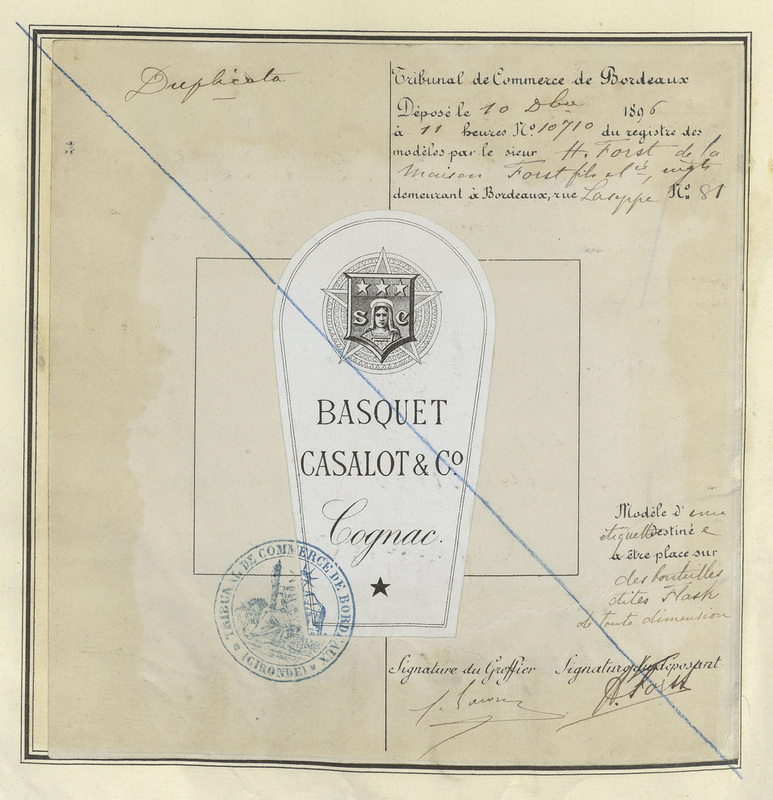 Duplicata
Tribunal de Commerce de Bordeaux
Déposé le 10 Dbre 1896
à 11 heures No 10710 du registre des
modèles par le sieur H. Forst de la
Maison Forst fils et Cie,
demeurant à Bordeaux, rue No 81
S C
BASQUET
CASALOT & Co
Cognac.
Modèle d'une
étiquette destinée
à être place sur
des bouteilles
dites Flask
de toute dimension
TRIBUNAL DE COMMERCE DE BORDEAUX
(GIRONDE)
Signature du Greffier Signature du déposant
H. Forst